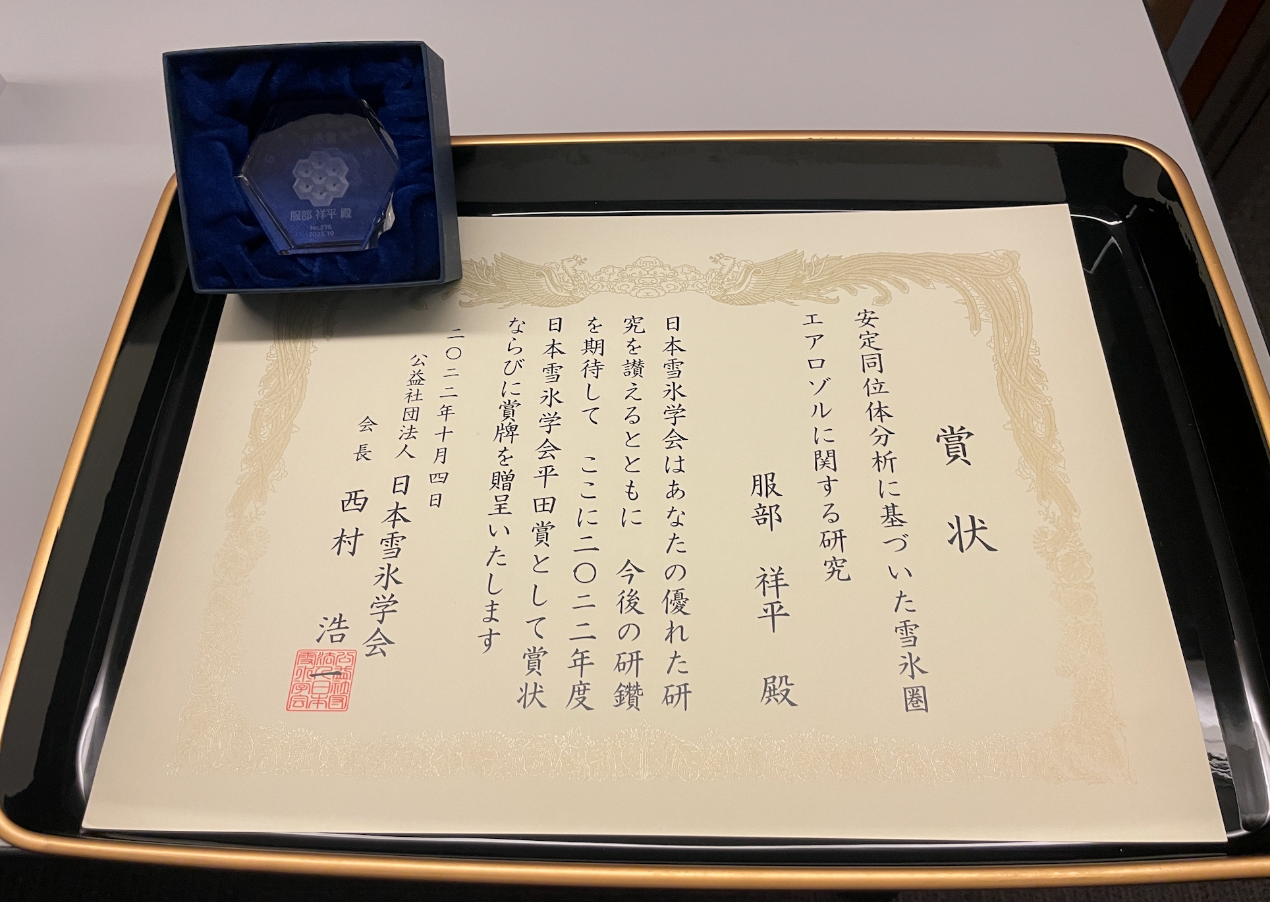 賞状
安定同位体分析に基づいた雪氷圏
エアロゾルに関する研究
服部 祥平 殿
日本雪氷学会はあなたの優れた研
究を讃えるとともに 今後の研鑽
を期待して ここに二〇二二年度
日本雪氷学会平田賞として賞状
ならびに賞牌を贈呈いたします
二〇二二年十月四日
公益社団法人 日本雪氷学会
会長 西村 浩一
公益社団
法人日本
雪氷学会
服部 祥平 殿